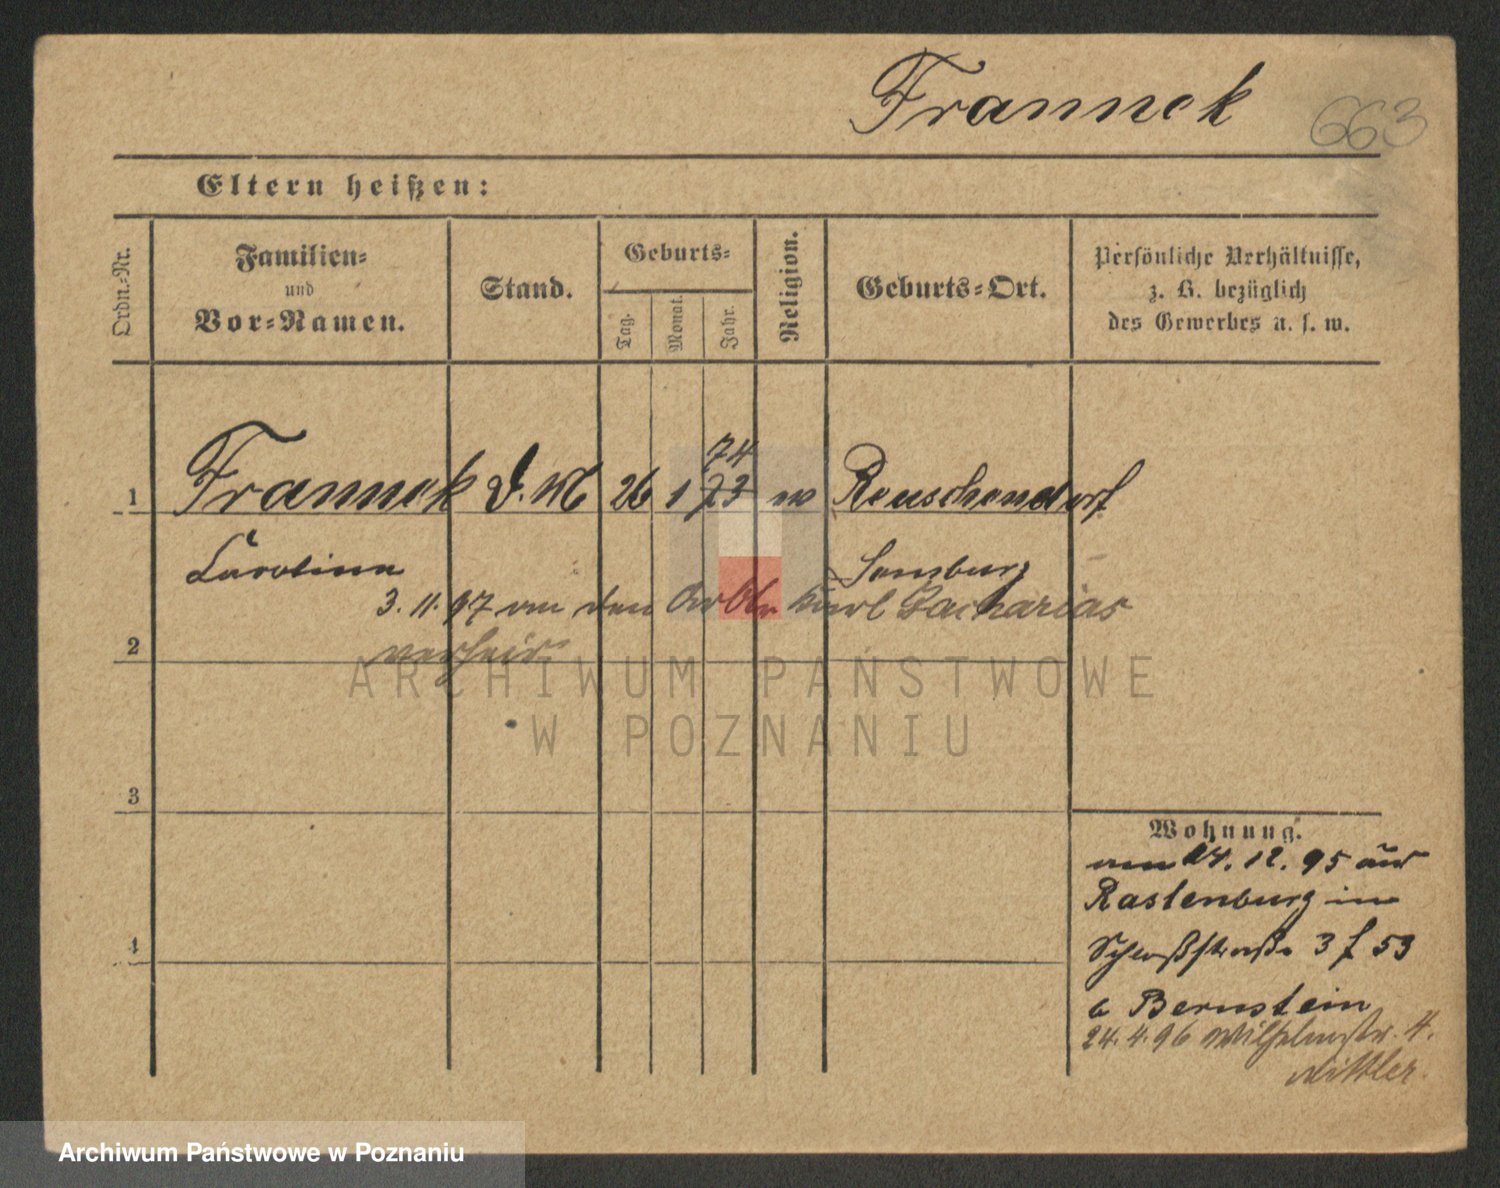 Frannek 663
Eltern heißen:
Ordn.-Nr.
Familien-
und
Vor-Namen.
Stand.
Geburts-
Tag.
Monat.
Jahr.
Religion.
Geburts-Ort.
Persönliche Verhältnisse,
z. B. bezüglich
des Gewerbes u. s. w.
74
1 Frannek D. M 26 1 73 w Reuschendorf
Caroline Sensburg
3. 11. 97 an den Arbtr Karl Zacharias
2 verheir.
ARCHIWUM PAŃSTWOWE
W POZNANIU
3
Wohnung.
am 24. 12. 95 aus
Rastenburg in
4 Schloßstraße 3 f 53
b Bernstein
24. 4. 96 Wilhelmstr. 4.
Archiwum Państwowe w Poznaniu